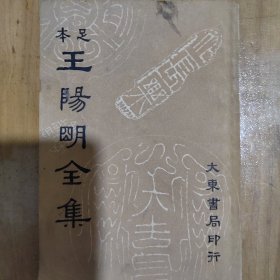 足本
王陽明全集
大東書局印行